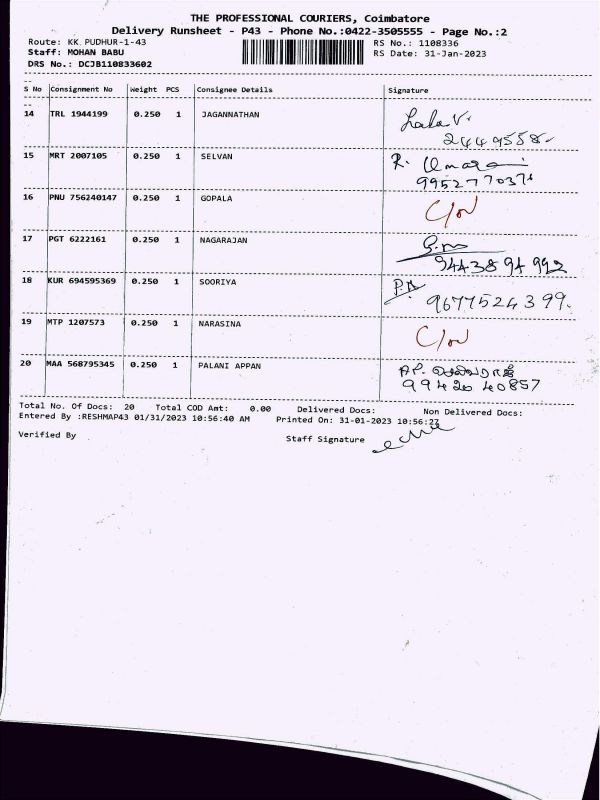 THE PROFESSIONAL COURIERS, Coimbatore
Delivery Runsheet - P43 - Phone No.:0422-3505555 - Page No.:2
Route: KK PUDHUR-1-43 RS No.: 1108336
Staff: MOHAN BABU RS Date: 31-Jan-2023
DRS No.: DCJB110833602
S No Consignment No Weight PCS Consignee Details Signature
14 TRL 1944199 0.250 1 JAGANNATHAN
2449558
15 MRT 2007105 0.250 1 SELVAN R.
16 PNU 756240147 0.250 1 GOPALA
17 PGT 6222161 0.250 1 NAGARAJAN
9443894992
18 KUR 694595369 0.250 1 SOORIYA
9677524399.
19 MTP 1207573 0.250 1 NARASINA
20 MAA 568795345 0.250 1 PALANI APPAN
9942040857
Total No. Of Docs: 20 Total COD Amt: 0.00 Delivered Docs: Non Delivered Docs:
Entered By :RESHMAP43 01/31/2023 10:56:40 AM Printed On: 31-01-2023 10:56:27
Verified By Staff Signature